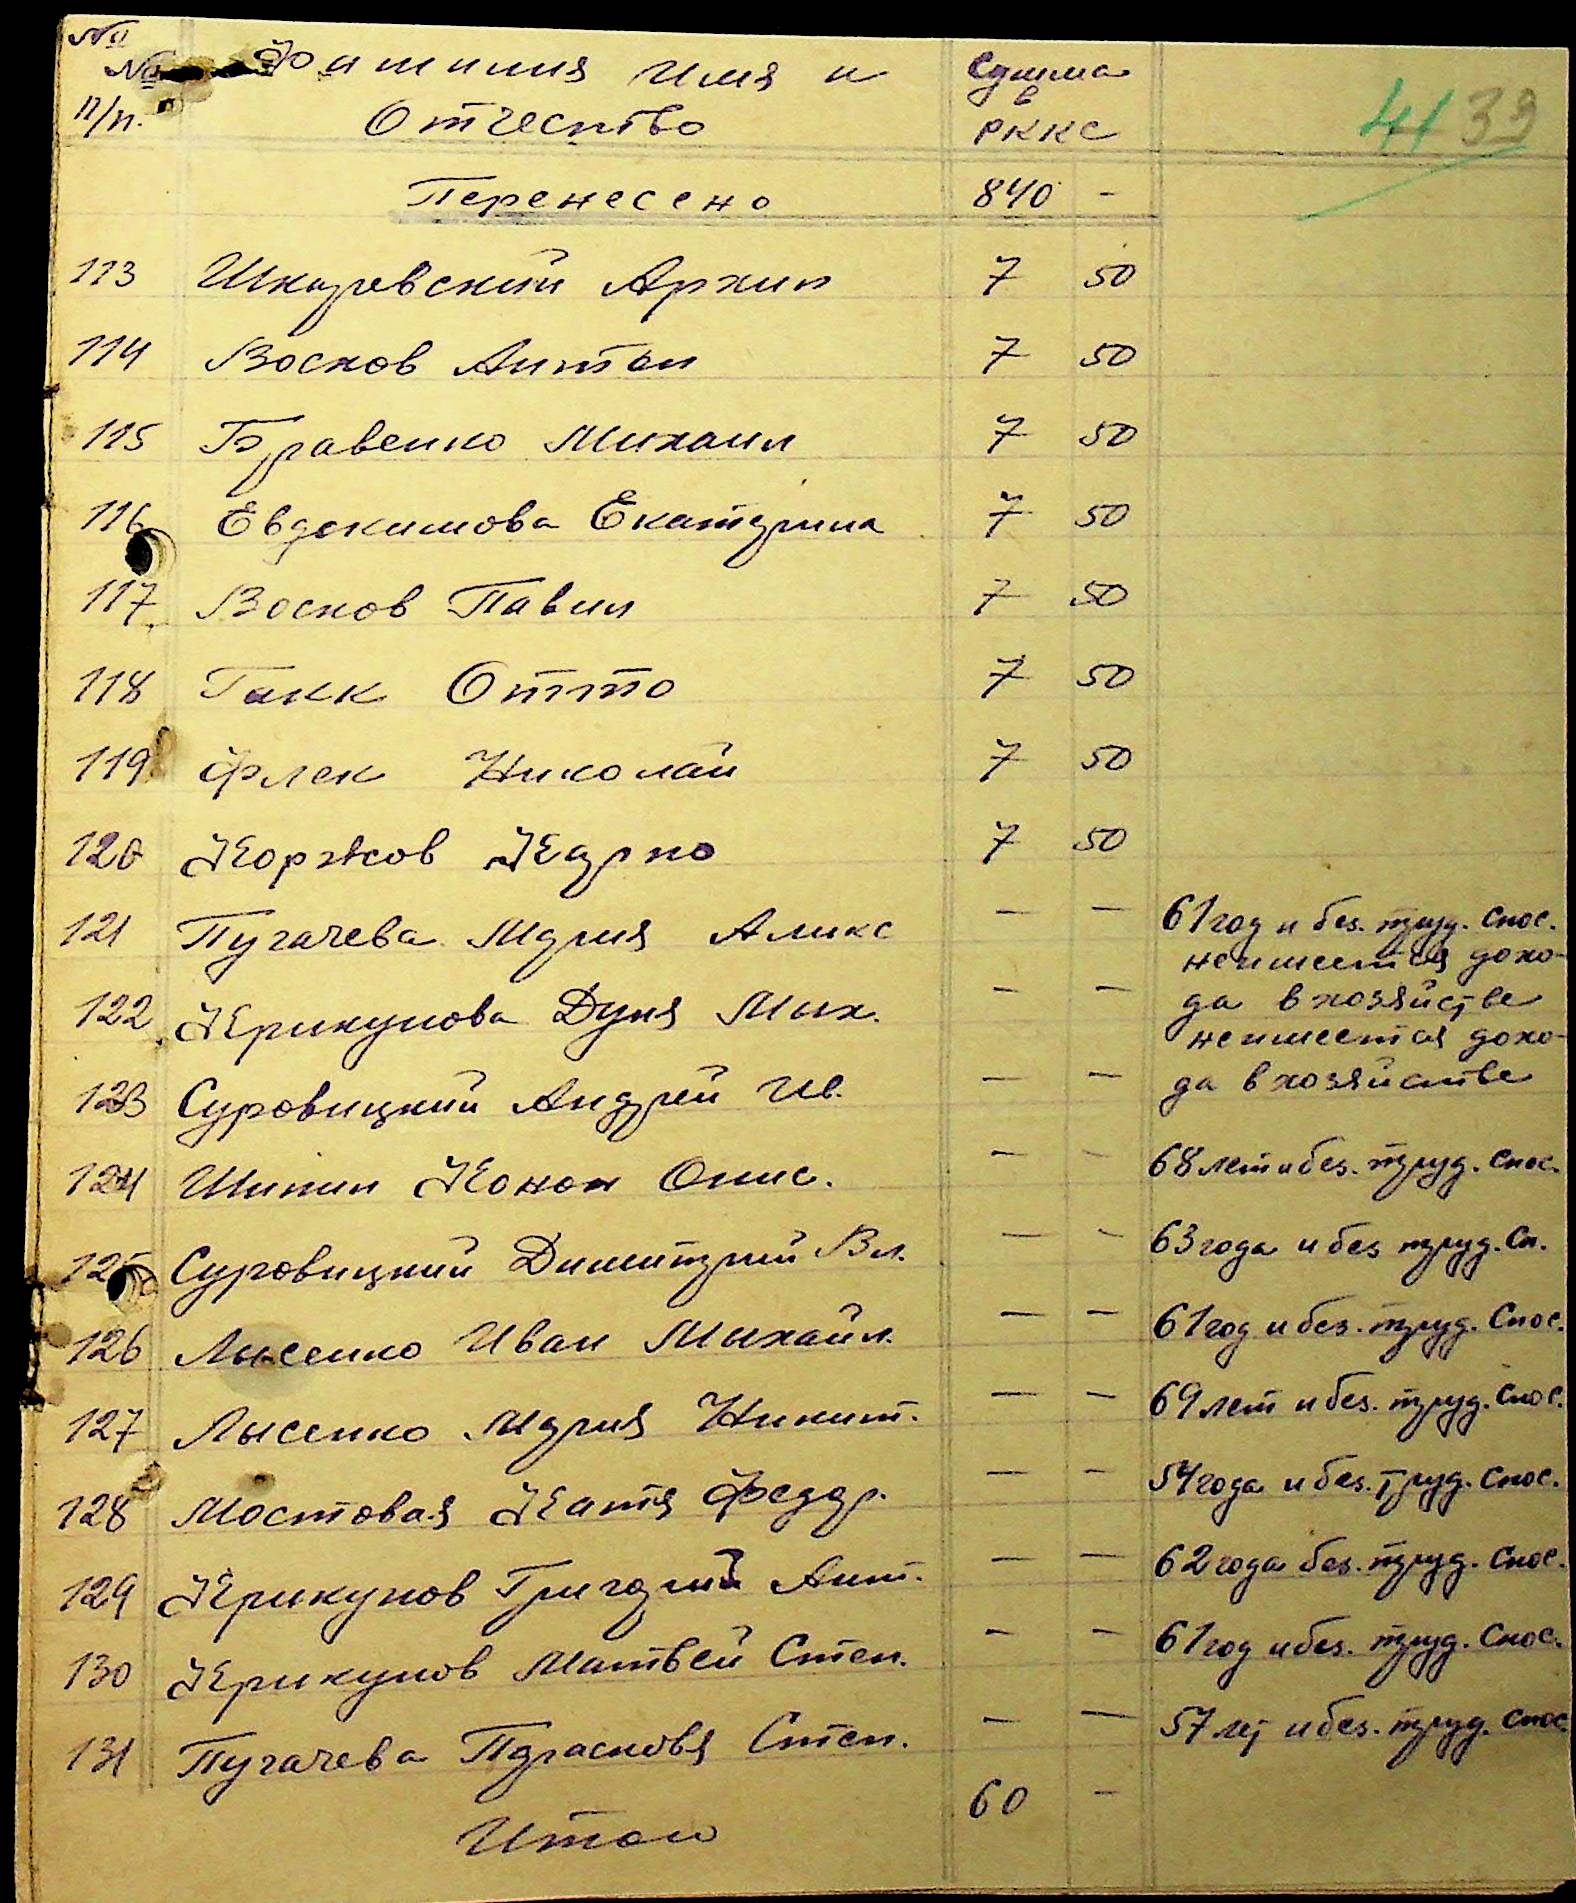 №№ Фамилия Имя и Сумма
п/п. Отчество в РККС
41 39
Перенесено 840 -
113 Шкаревский Архип 7 50
114 Восков Антон 7 50
115 Буравенко Михаил 7 50
116 Евдокимова Екатерина 7 50
117 Восков Павил 7 50
118 Гакк Отто 7 50
119 Флек Николай 7 50
120 Коржов Карпо 7 50
121 Пугачева Мария Алекс — — 61 год и без. труд. Спос.
неимеется дохо-
122 Крикунова Дуня Мих. — — да в хозяйстве
неимеется дохо-
123 Суровицкий Андрей Ив. — — да в хозяйстве
124 Шипил Конон Онис. — - 68 лет и без. труд. Спос.
125 Суровицкий Димитрий Вл. — - 63 года и без труд. Сп.
126 Лысенко Иван Михайл. — — 61 год и без. труд. Спос.
127 Лысенко Мария Никит. — — 69 лет и без. труд. Спос.
128 Мостовая Катя Федор. — — 54 года и без. труд. Спос.
129 Крикунов Григорий Ант. — — 62 года без. труд. Спос.
130 Крикунов Матвей Степ. — — 61 год и без. труд. Спос.
131 Пугачева Парасковя Степ. — — 57 лет и без. труд. Спос
Итого 60 -